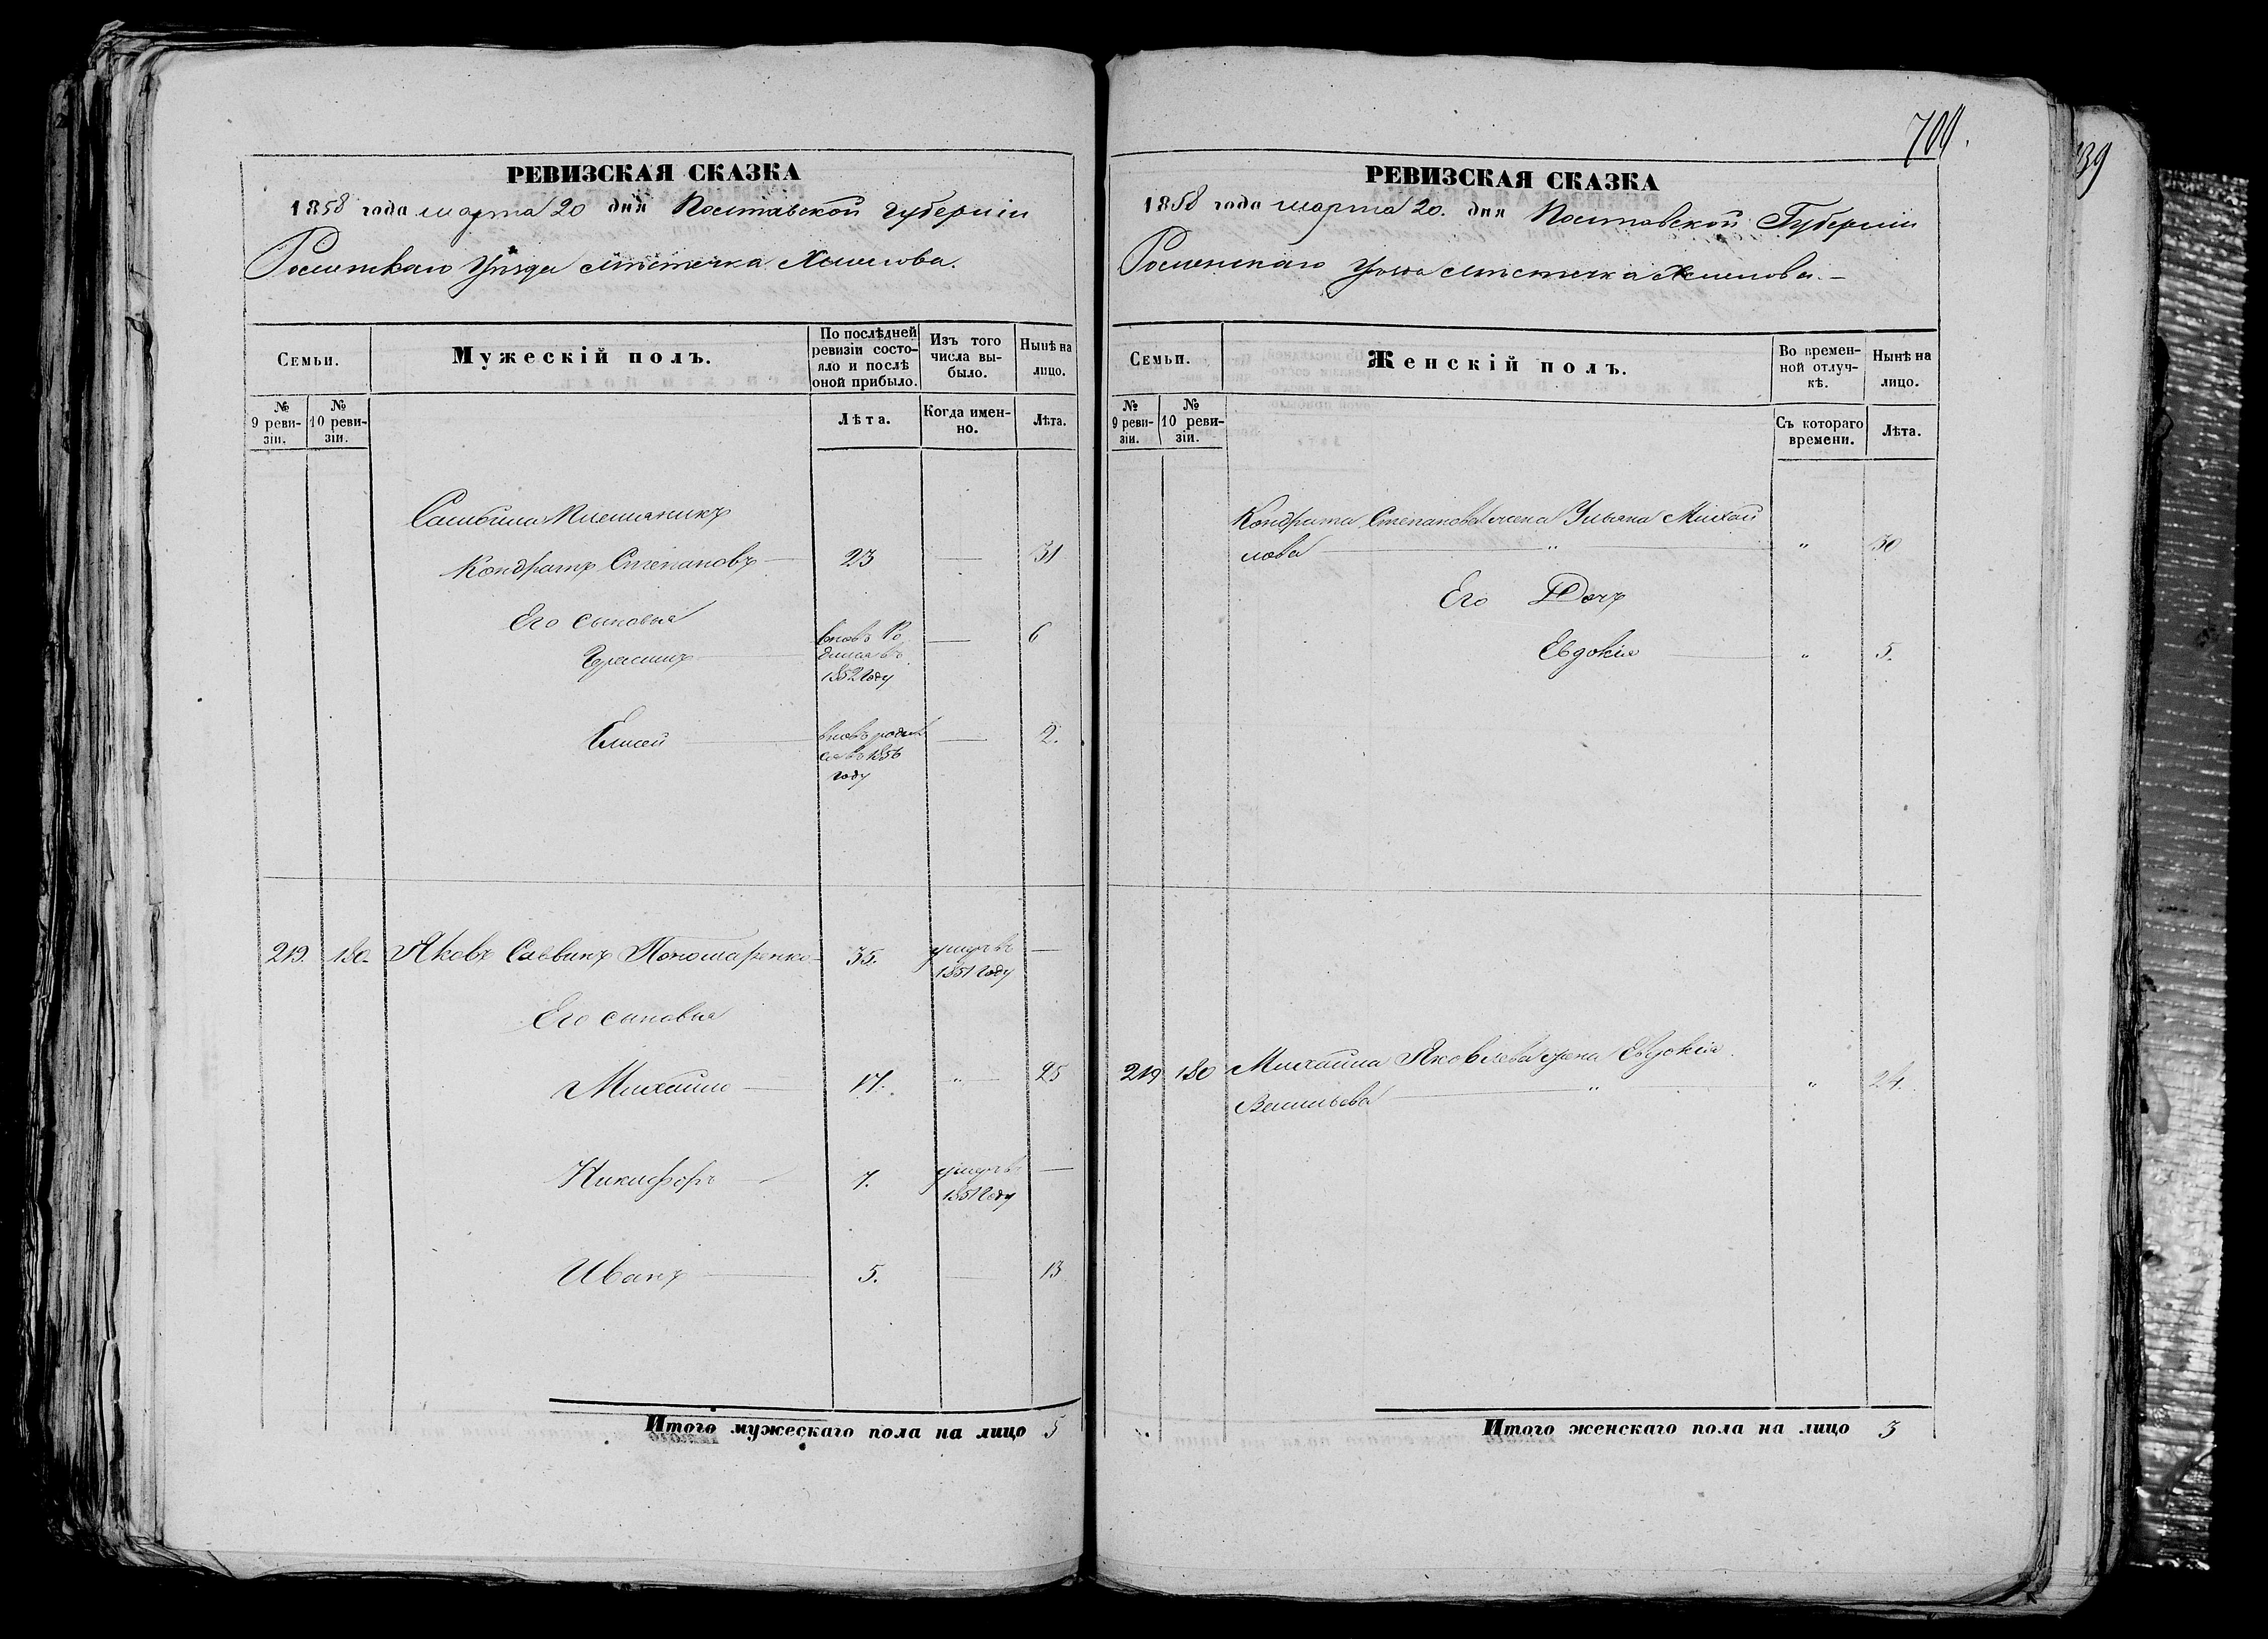 РЕВИЗСКАЯ СКАЗКА
1858 года марта 20 дня Полтавской губерніи
Роменскаго Уѣзда мѣстечка Хмелова.
Семьи.
Мужескій полъ.
По послѣдней ревизіи состояло и послѣ оной прибыло.
Изъ того числа выбыло.
Нынѣ на лицо.
№ 9 ревизіи.
№ 10 ревизіи.
Лѣта.
Когда именно.
Лѣта.
племянникъ
Кондратъ Степановъ 23 — 31
Его сыновья
Герасимъ вновь родился въ 1852 году — 6
Елисей вновь родился въ 1856 году — 2.
219. 180. Яковъ Саввинъ Пономаренко 35. умеръ въ 1851 году —
Его сыновья
Михайло 17. „ 25
Никифоръ 7. умеръ въ 1851 году —
Иванъ 5. — 13
Итого мужескаго пола на лицо 5
704.
РЕВИЗСКАЯ СКАЗКА
1858 года марта 20. дня Полтавской Губерніи
Роменскаго Уѣзда мѣстечка Хмелова.—
Семьи.
Женскій полъ.
Во временной отлучкѣ.
Нынѣ на лицо.
№ 9 ревизіи.
№ 10 ревизіи.
Съ котораго времени.
Лѣта.
Кондрата Степанова жена Ульяна Михай
лова „ „ 30
Его Дочь
Евдокія „ 5.
219 180 Михаила Яковлева жена Евдокія
Васильева „ „ 24.
Итого женскаго пола на лицо 3
39